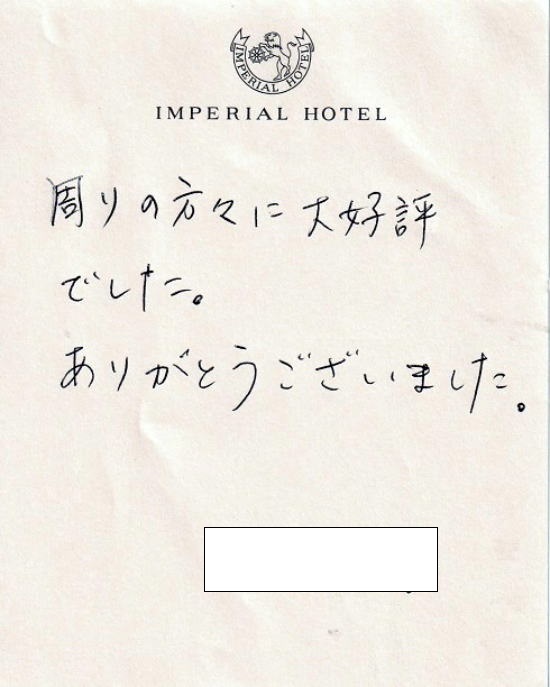 IMPERIAL HOTEL
IMPERIAL HOTEL
周りの方々に大好評
でした。
ありがとうございました。